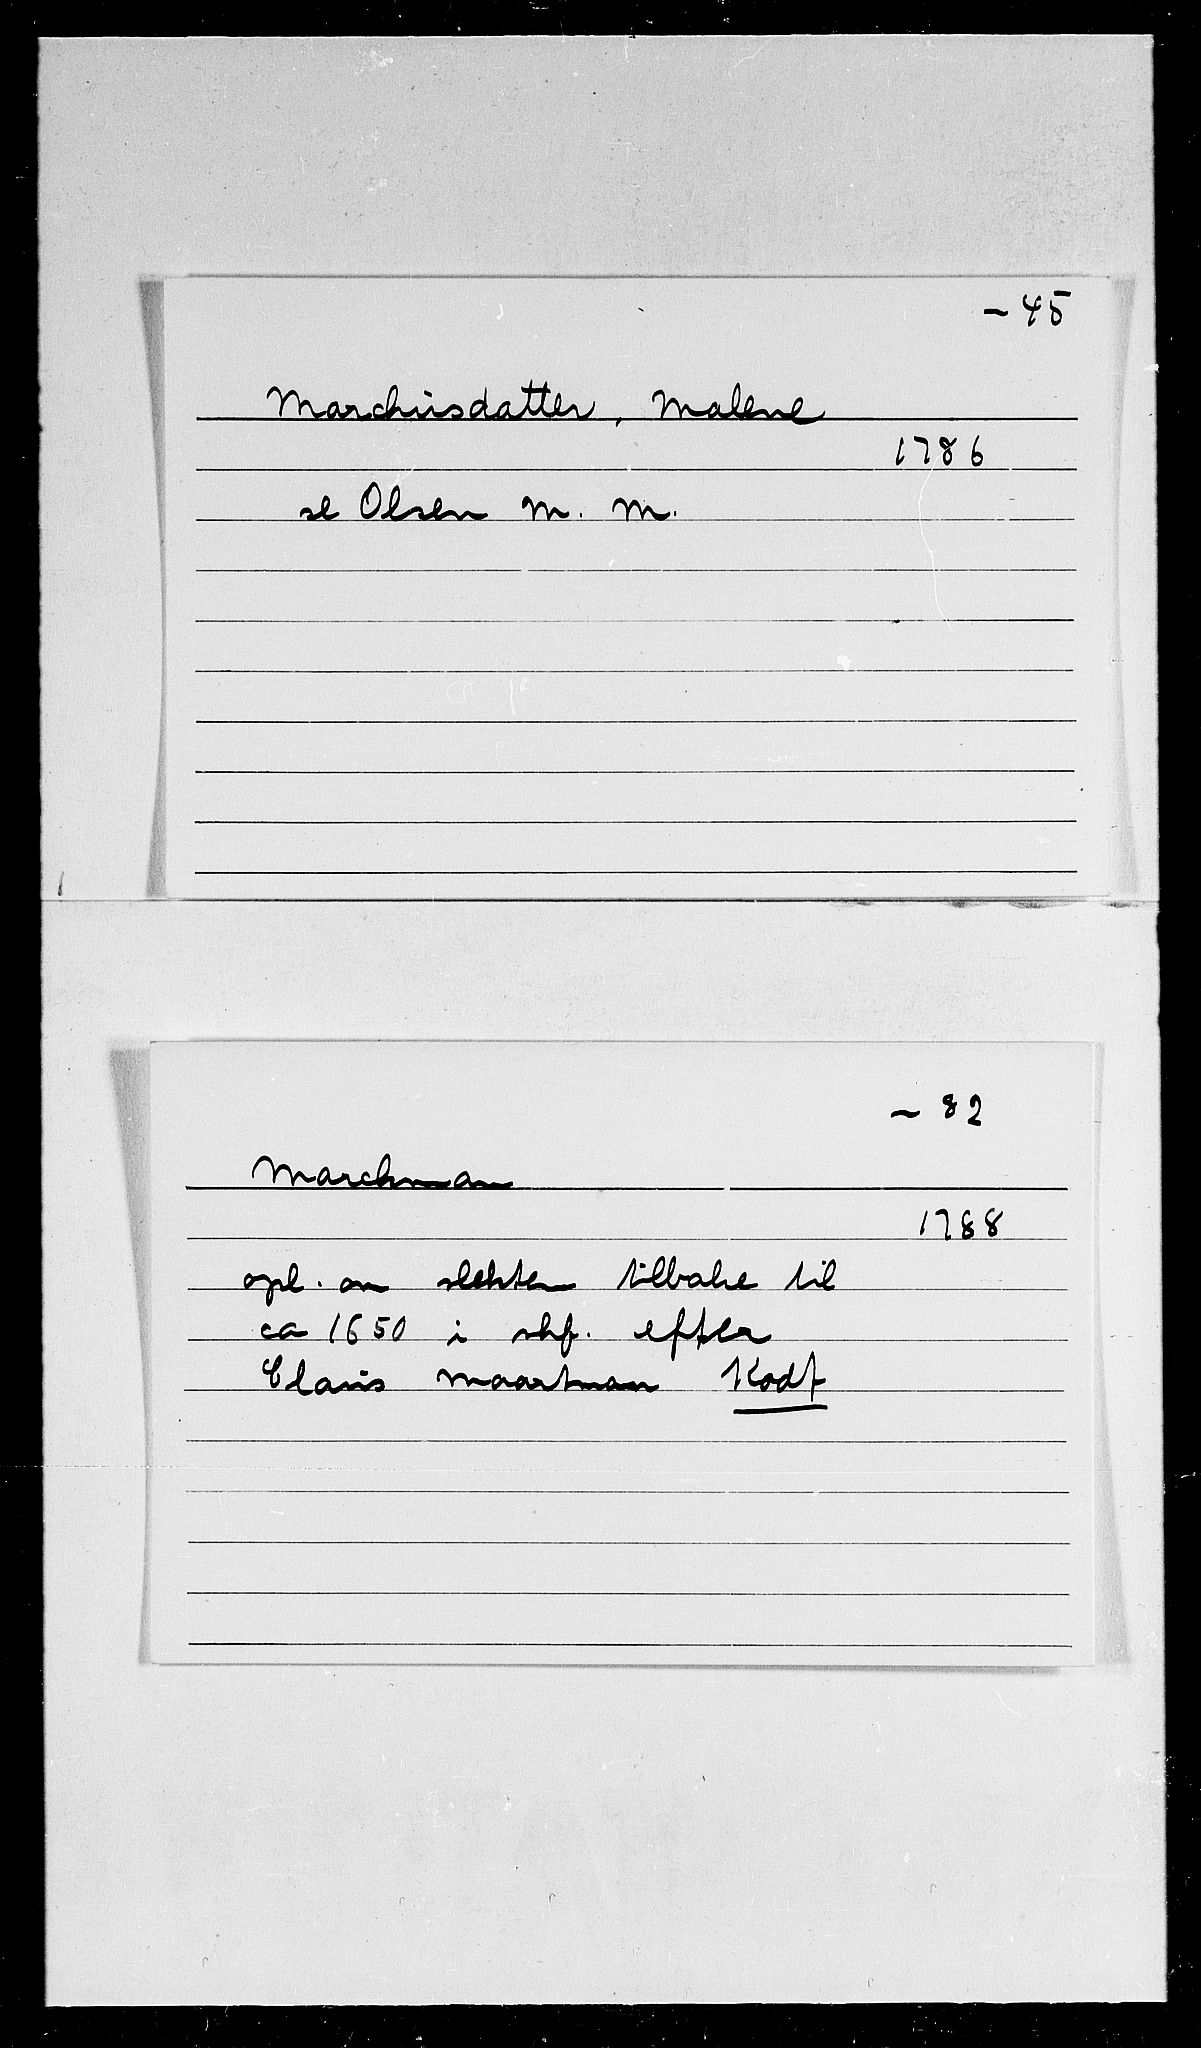 ~ 45
Marchusdatter, Malene
1786
se Olsen M. M.
~ 82
Marchman
1788
opl. om slekten tilbake til
ca 1650 i skf. efter
Claus Maartman Kodf